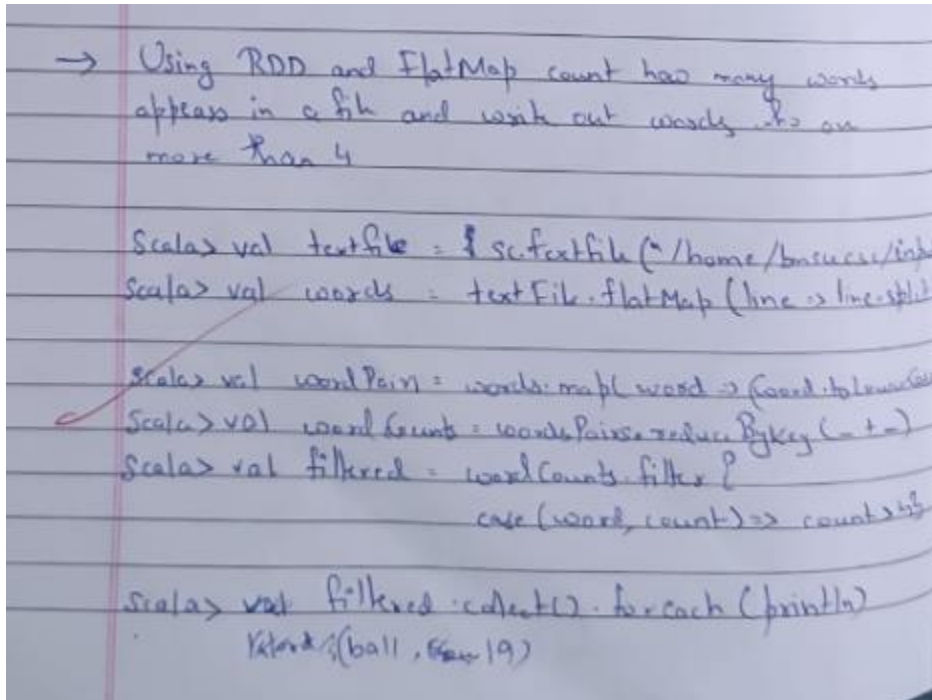 → Using RDD and FlatMap count how many words
appears in a file and write out words
more than 4
Scala> val textfile = sc.textfile("/home/bmsucse/inp
Scala> val words = textFile.flatMap(line => line.split
Scala> val wordPairs = words.map(word => (word.toLowerCas
Scala> val wordCounts = wordsPairs.reduceByKey(_+_)
Scala> val filtered = wordCounts.filter{
case(word, count) => count>4}
Scala> val filtered.collect().foreach(println)
(ball, 19)